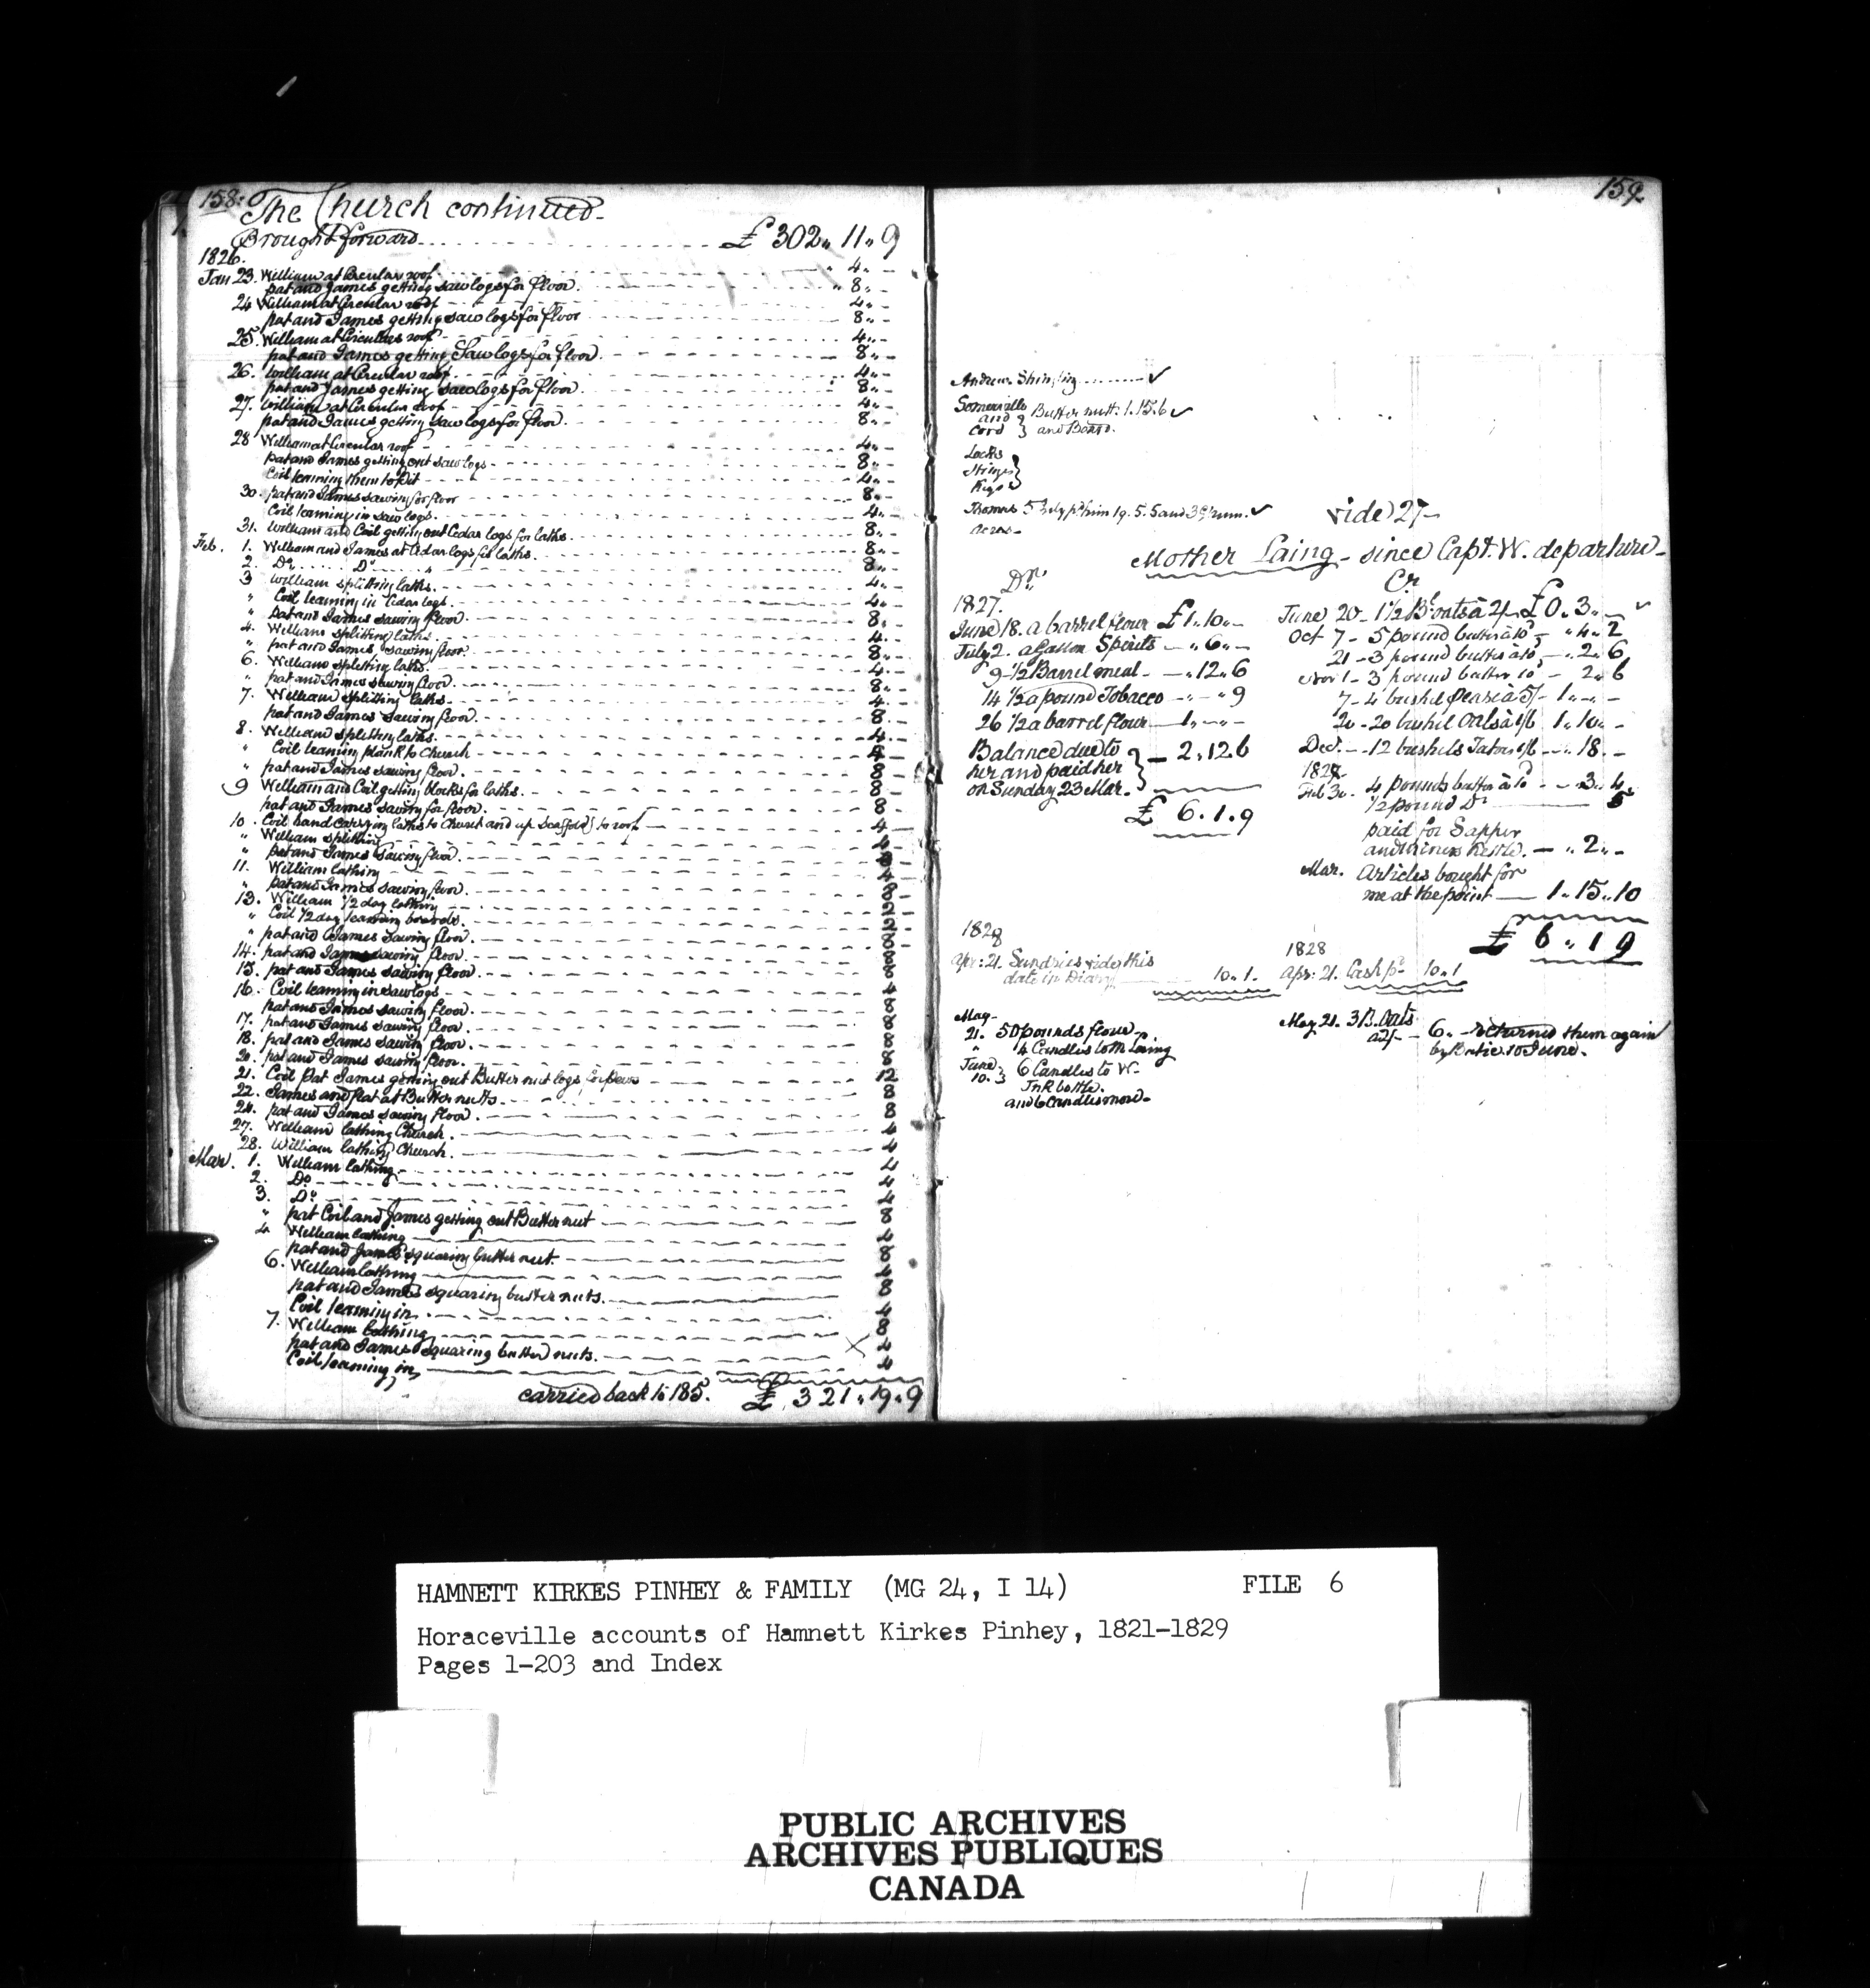 158.
The Church continued
Brought forward £ 302 " 11 " 9
1826.
Jan 23. William at Circular roof " 4 " -
pat and James getting saw logs for floor. " 8 " -
24 William at Circular roof 4 " -
pat and James getting saw logs for floor 8 " -
25. William at Circular roof 4 " -
pat and James getting Saw logs for floor. 8 " -
26. William at Circular roof 4 " -
pat and James getting saw logs for floor 8 " -
27. William at Circular roof 4 " -
pat and James getting saw logs for floor. 8 " -
28 William at Circular roof 4 " -
pat and James getting out saw logs 8 " -
Coil teaming them to Pit 4 " -
30. pat and James sawing for floor 8 " -
Coil teaming in saw logs. 4 " -
31. William and Coil getting out Cedar logs for laths. 8 " -
Feb. 1. William and James at Cedar logs for laths. 8 " -
2. Do. Do " 8 " -
3 William splitting laths. 4 " -
" Coil teaming in Cedar logs. 4 " -
" pat and James sawing floor. 8 " -
4. William splitting laths. 4 " -
" pat and James sawing floor. 8 " -
6. William splitting laths. 4 " -
" pat and James sawing floor. 8 " -
7. William splitting laths 4 -
pat and James sawing floor. 8 -
8. William splitting laths. 4 -
" Coil teaming plank to Church 4 -
" pat and James sawing floor. 8 -
9 William and Coil getting blocks for laths. 8 -
pat and James sawing for floor. 8 -
10. Coil hand carrying laths to Church and up Scaffold to roof 4 -
" William splitting 4 -
" pat and James sawing floor. 8 -
11. William lathing 4 -
" pat and James sawing floor. 8 -
13. William 1/2 day lathing 2 -
" Coil 1/2 day teaming boards. 2 -
" pat and James sawing floor. 8 -
14. pat and James sawing floor. 8
15. pat and James sawing floor. 8
16. Coil teaming in saw logs 4
pat and James sawing floor. 8
17. pat and James sawing floor. 8
18. pat and James sawing floor. 8
20. pat and James sawing floor. 8
21. Coil Pat James getting out Butter nut logs for pews 12
22. James and Pat at Butter nuts 8
24. pat and James sawing floor. 8
27. William lathing Church. 4
28. William lathing Church. 4
Mar. 1. William lathing 4
2. Do 4
3. Do 4
" pat Coil and James getting out Butter nut 8
4 William lathing 4
pat and James squaring butter nut. 8
6. William lathing 4
pat and James squaring butter nuts. 8
Coil teaming in. 4
7. William lathing 8
pat and James squaring butter nuts.
Coil teaming in 4
carried back to 185. £ 321 " 19 " 9
159.
Andrew Shingling ✓
Somerville
and Butter nutt. 1.15.6 ✓
Cord and Board.
Locks
Hinges
Keys
Thomas
vide 27
Mother Laing - since Capt. W. departure
Dr.
1827.
June 18. a barrel flour £1 " 10 " -
July 2. a Gallon Spirits - " 6 " -
9 - 1/2 Barrel meal - " 12 " 6
14 1/2 a pound Tobacco - " - " 9
26 1/2 a barrel flour 1 " - " -
Balance due to
her and paid her 2.12 6
on Sunday 23 Mar.
£ 6.1.9
Cr
June 20 - 1 1/2 Bl oats à 2/ £0.3. - ✓
Oct 7 - 5 pound butter à 10d - " 4 " 2
21 - 3 pound butter à 10 - " 2 " 6
Nov 1 - 3 pound butter 10 - 2 " 6
7 - 4 bushel pease à 5/- 1 " - " -
20 - 20 bushel Oats à 1/6 1 " 10 " -
Decr. - 12 bushels Tators 1/6 - " 18. -
1828
Feb 30. 4 pounds butter à 10d - " 3 " 4
1/2 pound Do 5
paid for Sapper
and miners Kettle. - " 2 " -
Mar. Articles bought for
me at the point - 1 " 15 " 10
£ 6 " 1 9
1828
Apr: 21. Sundries vide this
date in Diary 10 " 1 -
1828
Apr: 21. Cash pd 10 " 1
May
21. 50 pounds flour
" 4 Candles to M Laing
June 6 Candles to W.
10.
and 6 Candles more
May 21. 3 B. Oats
à 2/- - 6 " - returned them again
10 June.
HAMNETT KIRKES PINHEY & FAMILY (MG 24, I 14) FILE 6
Horaceville accounts of Hamnett Kirkes Pinhey, 1821-1829
Pages 1-203 and Index
PUBLIC ARCHIVES
ARCHIVES PUBLIQUES
CANADA